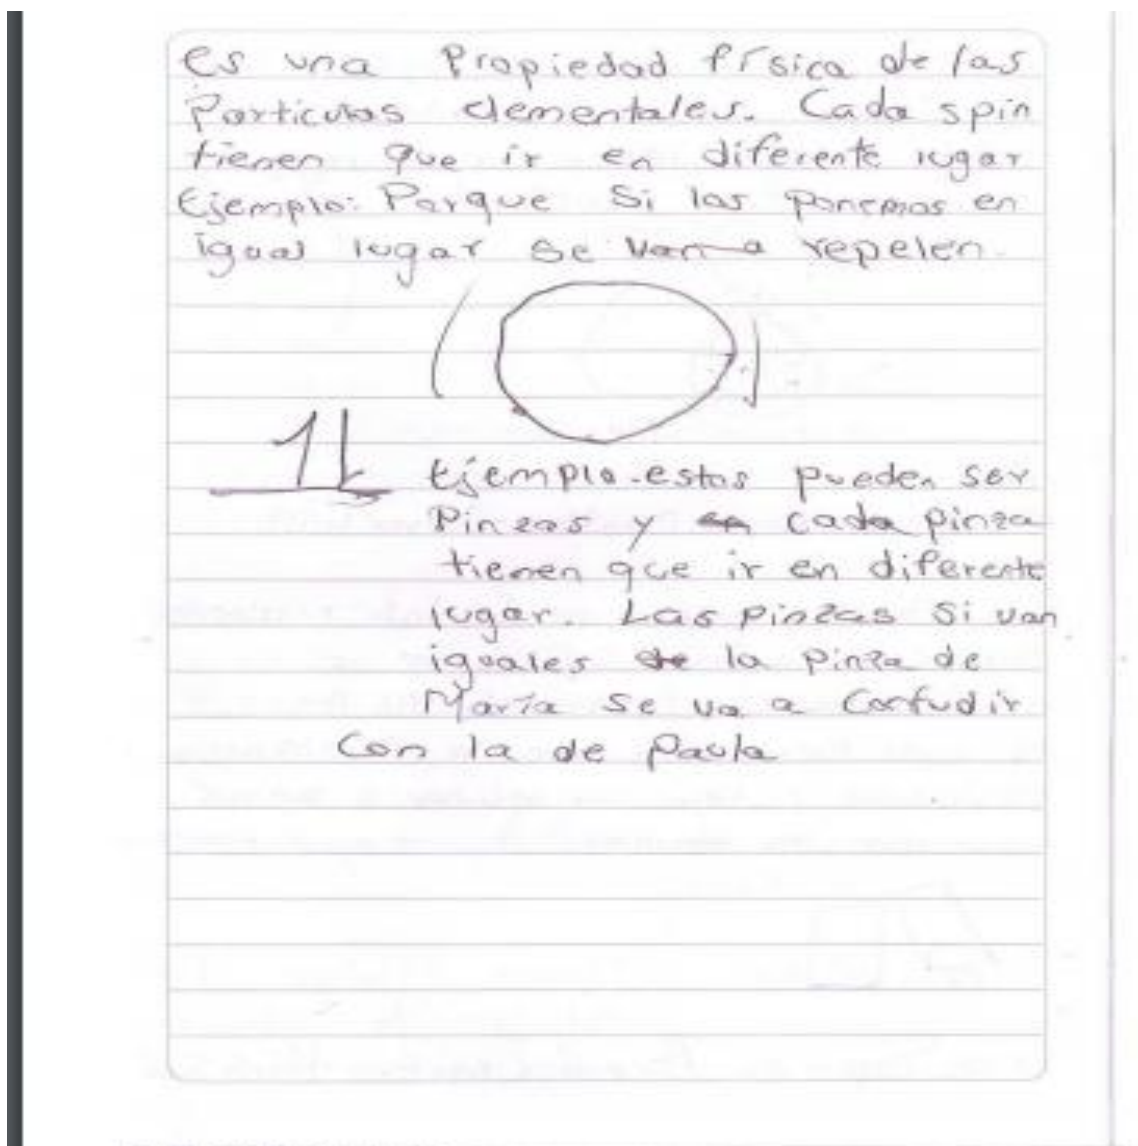 es una Propiedad física de las
Particulas elementales. Cada spin
tienen que ir en diferente lugar
Ejemplo: Porque Si los ponemos en
igual lugar se van a repelen.
Ejemplo. estas pueden ser
Pinzas y cada pinza
tienen que ir en diferente
lugar. Las pinzas Si van
iguales la pinza de
María se va a Confudir
Con la de Paula